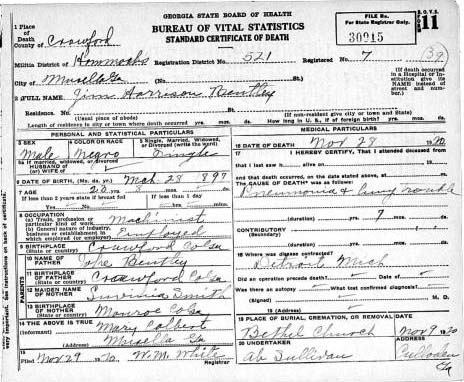 GEORGIA STATE BOARD OF HEALTH
BUREAU OF VITAL STATISTICS
STANDARD CERTIFICATE OF DEATH
FILE No.
For State Registrar Only.
30915
11
1 Place of Death
County of Crawford
Militia District of Hammocks Registration District No. 521 Registered No. 7
City of Musella Ga
(If death occurred in a Hospital or Institution give its NAME instead of street and number.)
2 FULL NAME Jim Harrison Bentley
Residence. No. St.
(Usual place of abode) (If non-resident give city or town and State)
Length of residence in city or town where death occurred. yrs. mos. ds. How long in U. S., if of foreign birth? yrs. mos. ds.
PERSONAL AND STATISTICAL PARTICULARS
3 SEX
Male
4 COLOR OR RACE
Negro
5 Single, Married, Widowed, or Divorced (write the word)
Single
If married, widowed, or divorced
HUSBAND of
(or) WIFE of
6 DATE OF BIRTH, (Mo., Day, Yr.) Mch. 28 897
7 AGE
If less than 2 years state if breast fed
If less than 1 day
Yes No
8 OCCUPATION
(a) Trade, profession or particular kind of work. Machinist
(b) General nature of industry, business or establishment in which employed (or employer) Employed
9 BIRTHPLACE
(State or country) Crawford Co Ga
10 NAME OF FATHER Bentley
11 BIRTHPLACE OF FATHER
(State or country) Crawford Co Ga
12 MAIDEN NAME OF MOTHER Smith
13 BIRTHPLACE OF MOTHER
(State or country) Monroe Co Ga
PARENTS
14 THE ABOVE IS TRUE Mary Colbert
(Address) Musella Ga
15 Filed Nov 29 W. M. White
Registrar
MEDICAL PARTICULARS
16 DATE OF DEATH Nov 28 1920
17 I HEREBY CERTIFY, That I attended deceased
from to
that I last saw alive on
and that death occurred, on the date stated above, at m.
The CAUSE OF DEATH* was as follows:
Pneumonia & Trouble
(duration) yrs. mos. ds.
CONTRIBUTORY
(Secondary)
(duration) yrs. mos. ds.
18 Where was disease contracted?
Detroit Mich
Did an operation precede death? date
Was there an autopsy What test confirmed diagnosis?
(Signed) M. D.
(Address)
19 PLACE OF BURIAL, CREMATION, OR REMOVAL DATE
Bethel Church
20 UNDERTAKER
Ab Sullivan
Culloden Ga
very important. See instructions on back of certificate.